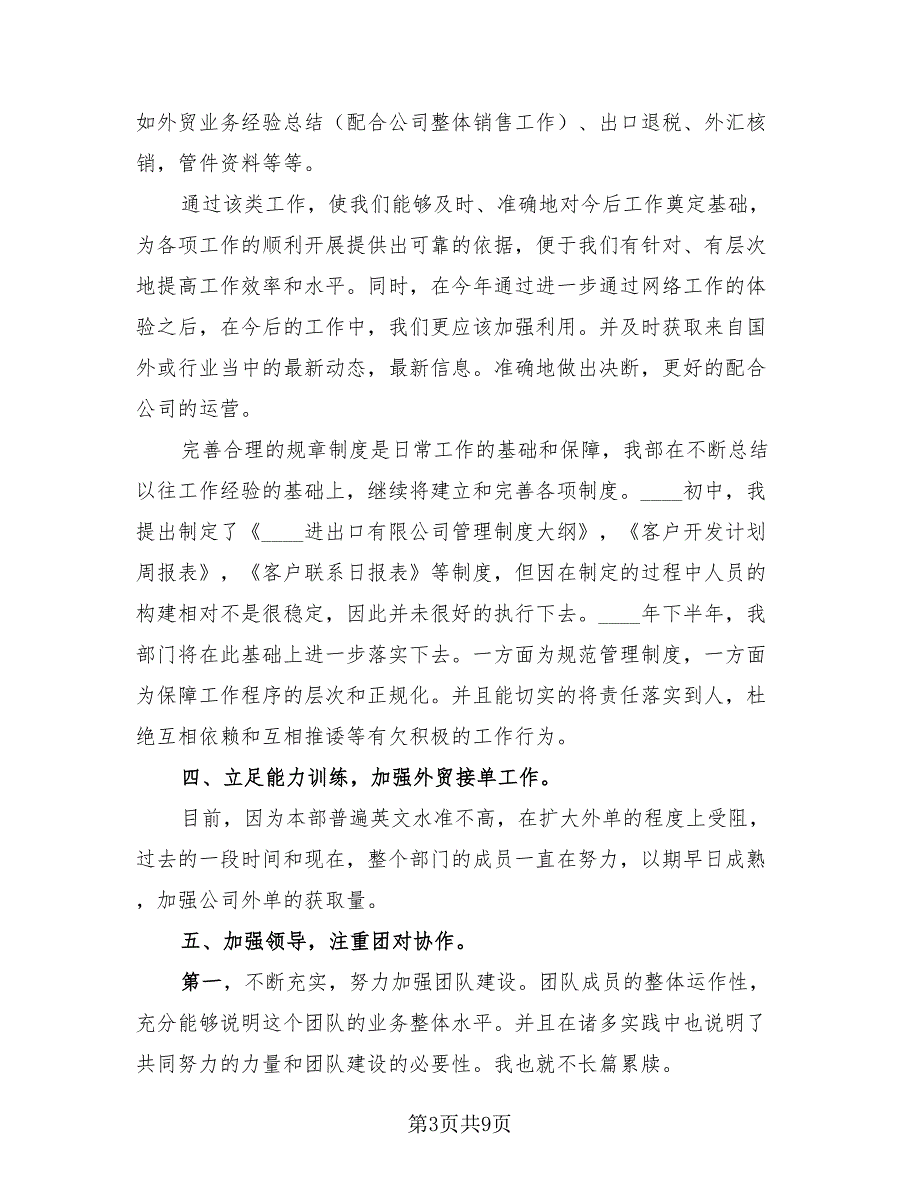 如外贸业务经验总结（配合公司整体销售工作）、出口退税、外汇核
销，管件资料等等。
通过该类工作，使我们能够及时、准确地对今后工作奠定基础，
为各项工作的顺利开展提供出可靠的依据，便于我们有针对、有层次
地提高工作效率和水平。同时，在今年通过进一步通过网络工作的体
验之后，在今后的工作中，我们更应该加强利用。并及时获取来自国
外或行业当中的最新动态，最新信息。准确地做出决断，更好的配合
公司的运营。
完善合理的规章制度是日常工作的基础和保障，我部在不断总结
以往工作经验的基础上，继续将建立和完善各项制度。____初中，我
提出制定了《____进出口有限公司管理制度大纲》，《客户开发计划
周报表》，《客户联系日报表》等制度，但因在制定的过程中人员的
构建相对不是很稳定，因此并未很好的执行下去。____年下半年，我
部门将在此基础上进一步落实下去。一方面为规范管理制度，一方面
为保障工作程序的层次和正规化。并且能切实的将责任落实到人，杜
绝互相依赖和互相推诿等有欠积极的工作行为。
四、立足能力训练，加强外贸接单工作。
目前，因为本部普遍英文水准不高，在扩大外单的程度上受阻，
过去的一段时间和现在，整个部门的成员一直在努力，以期早日成熟
，加强公司外单的获取量。
五、加强领导，注重团对协作。
第一，不断充实，努力加强团队建设。团队成员的整体运作性，
充分能够说明这个团队的业务整体水平。并且在诸多实践中也说明了
共同努力的力量和团队建设的必要性。我也就不长篇累牍。
第3页共9页